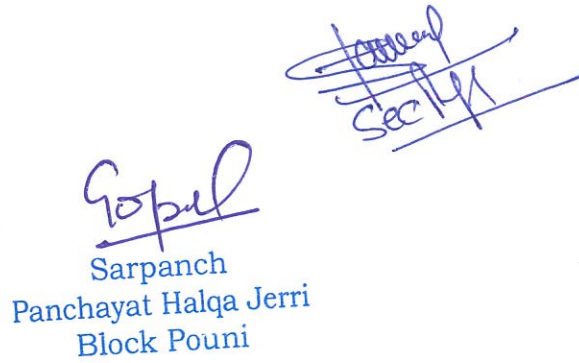 Sec
Gopal
Sarpanch
Panchayat Halqa Jerri
Block Pouni